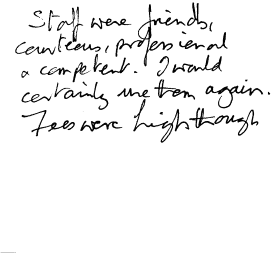 Staff were friendly,
courteous, professional
a competent. I would
certainly use them again.
Fees were high though